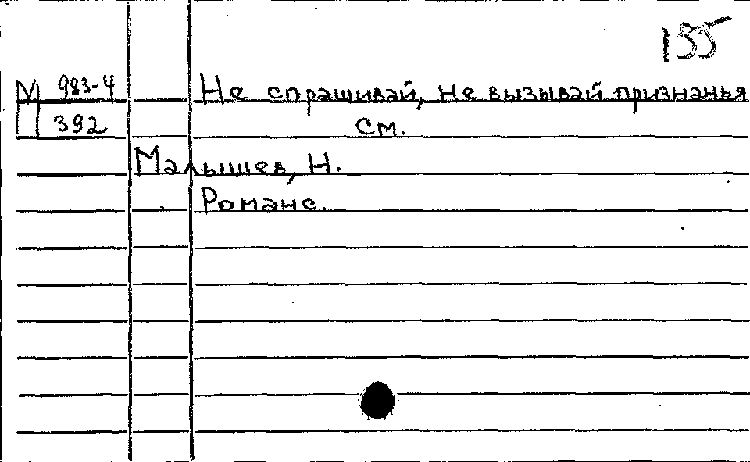 155
М 983-4
392
Не спрашивай, не вызывай признанья
см.
Малышев, Н.
Романс.